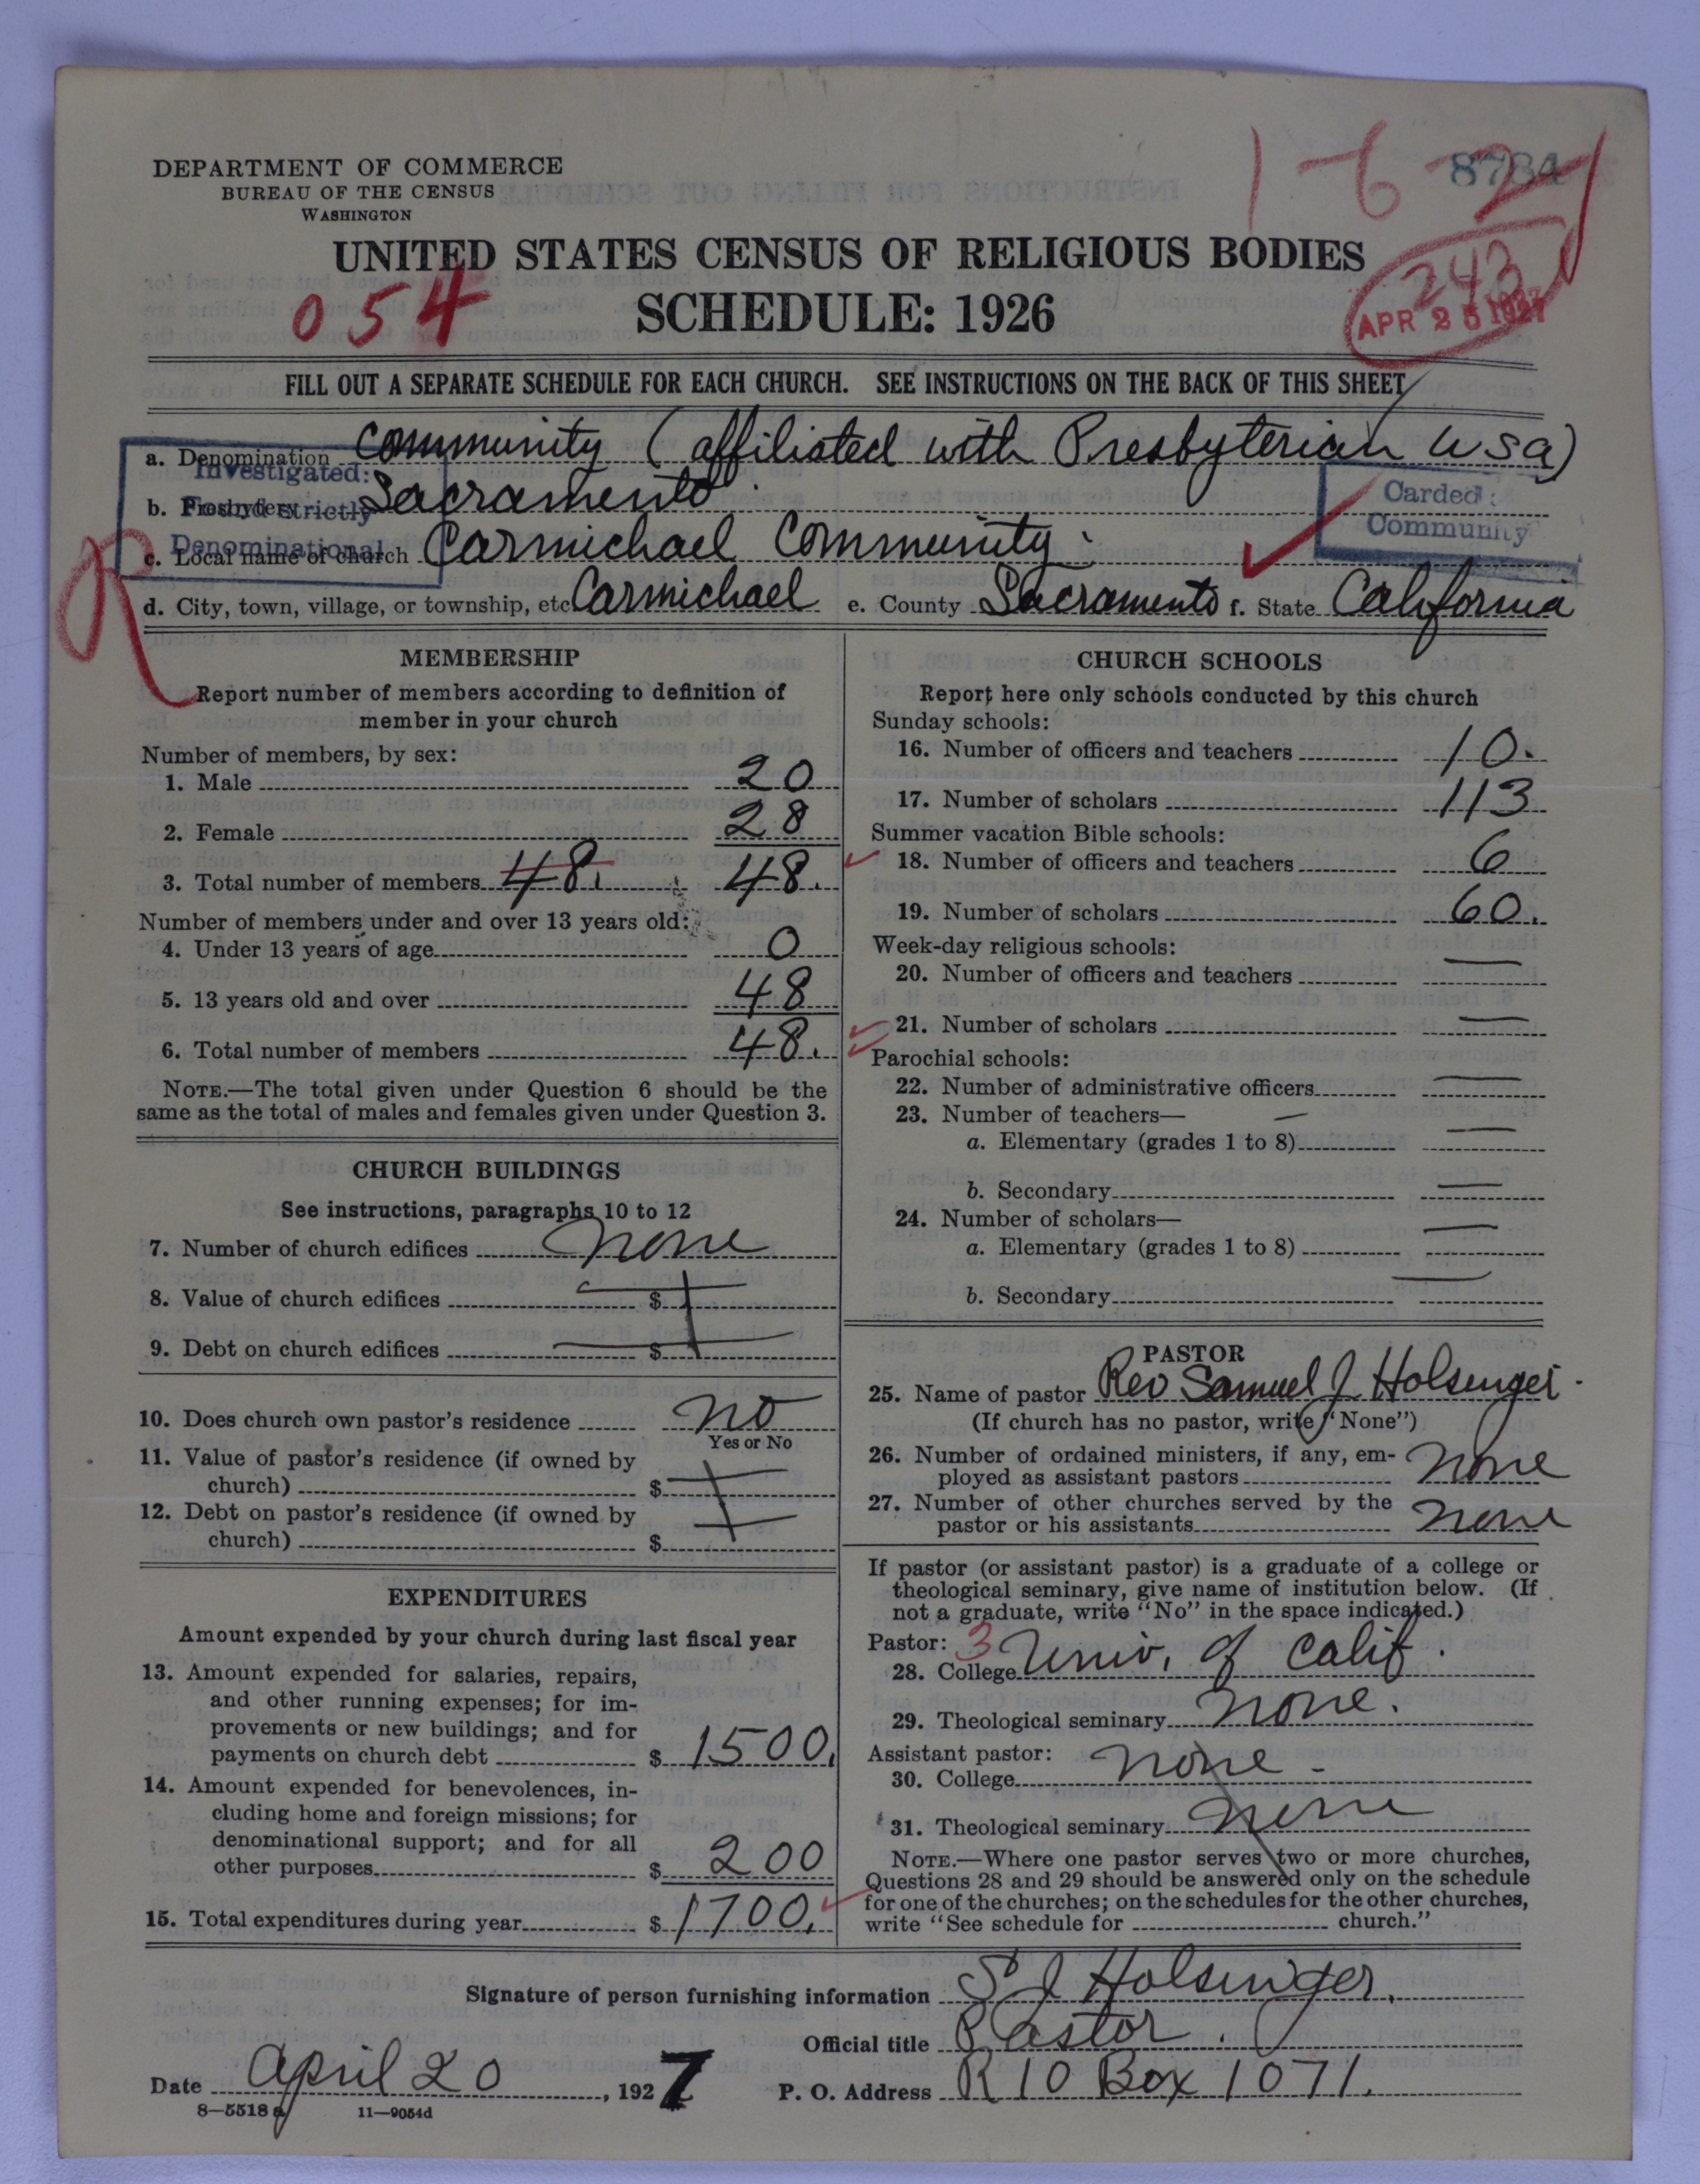 DEPARTMENT OF COMMERCE
BUREAU OF THE CENSUS
WASHINGTON
8784
1-6-2
UNITED STATES CENSUS OF RELIGIOUS BODIES
SCHEDULE: 1926
054
243
APR 25 1927
FILL OUT A SEPARATE SCHEDULE FOR EACH CHURCH. SEE INSTRUCTIONS ON THE BACK OF THIS SHEET
a. Denomination Community (affiliated with Presbyterian USA)
Investigated:
Found strictly
Denominational
Carded:
Community
b. Presbytery Sacramento
c. Local name of church Carmichael Community.
d. City, town, village, or township, etc. Carmichael e. County Sacramento f. State California
MEMBERSHIP
Report number of members according to definition of
member in your church
Number of members, by sex:
1. Male 20
2. Female 28
3. Total number of members 48. 48.
Number of members under and over 13 years old:
4. Under 13 years of age 0
5. 13 years old and over 48
6. Total number of members 48.
NOTE.—The total given under Question 6 should be the
same as the total of males and females given under Question 3.
CHURCH BUILDINGS
See instructions, paragraphs 10 to 12
7. Number of church edifices None
8. Value of church edifices $
9. Debt on church edifices $
10. Does church own pastor's residence No
Yes or No
11. Value of pastor's residence (if owned by
church) $
12. Debt on pastor's residence (if owned by
church) $
EXPENDITURES
Amount expended by your church during last fiscal year
13. Amount expended for salaries, repairs,
and other running expenses; for im-
provements or new buildings; and for
payments on church debt $ 1500.
14. Amount expended for benevolences, in-
cluding home and foreign missions; for
denominational support; and for all
other purposes $ 200
15. Total expenditures during year $ 1700.
CHURCH SCHOOLS
Report here only schools conducted by this church
Sunday schools:
16. Number of officers and teachers 10.
17. Number of scholars 113
Summer vacation Bible schools:
18. Number of officers and teachers 6
19. Number of scholars 60.
Week-day religious schools:
20. Number of officers and teachers —
21. Number of scholars —
Parochial schools:
22. Number of administrative officers —
23. Number of teachers— —
a. Elementary (grades 1 to 8) —
b. Secondary —
24. Number of scholars—
a. Elementary (grades 1 to 8) —
b. Secondary —
PASTOR
25. Name of pastor Rev Samuel J Holsinger.
(If church has no pastor, write "None")
26. Number of ordained ministers, if any, em-
ployed as assistant pastors None
27. Number of other churches served by the
pastor or his assistants None
If pastor (or assistant pastor) is a graduate of a college or
theological seminary, give name of institution below. (If
not a graduate, write "No" in the space indicated.)
Pastor: 3
28. College Univ. of Calif.
29. Theological seminary None.
Assistant pastor:
30. College None -
31. Theological seminary None
NOTE.—Where one pastor serves two or more churches,
Questions 28 and 29 should be answered only on the schedule
for one of the churches; on the schedules for the other churches,
write "See schedule for church."
Signature of person furnishing information S J Holsinger.
Official title Pastor.
Date April 20, 1927 P. O. Address R 10 Box 1071.
8—5518 a 11—9054d